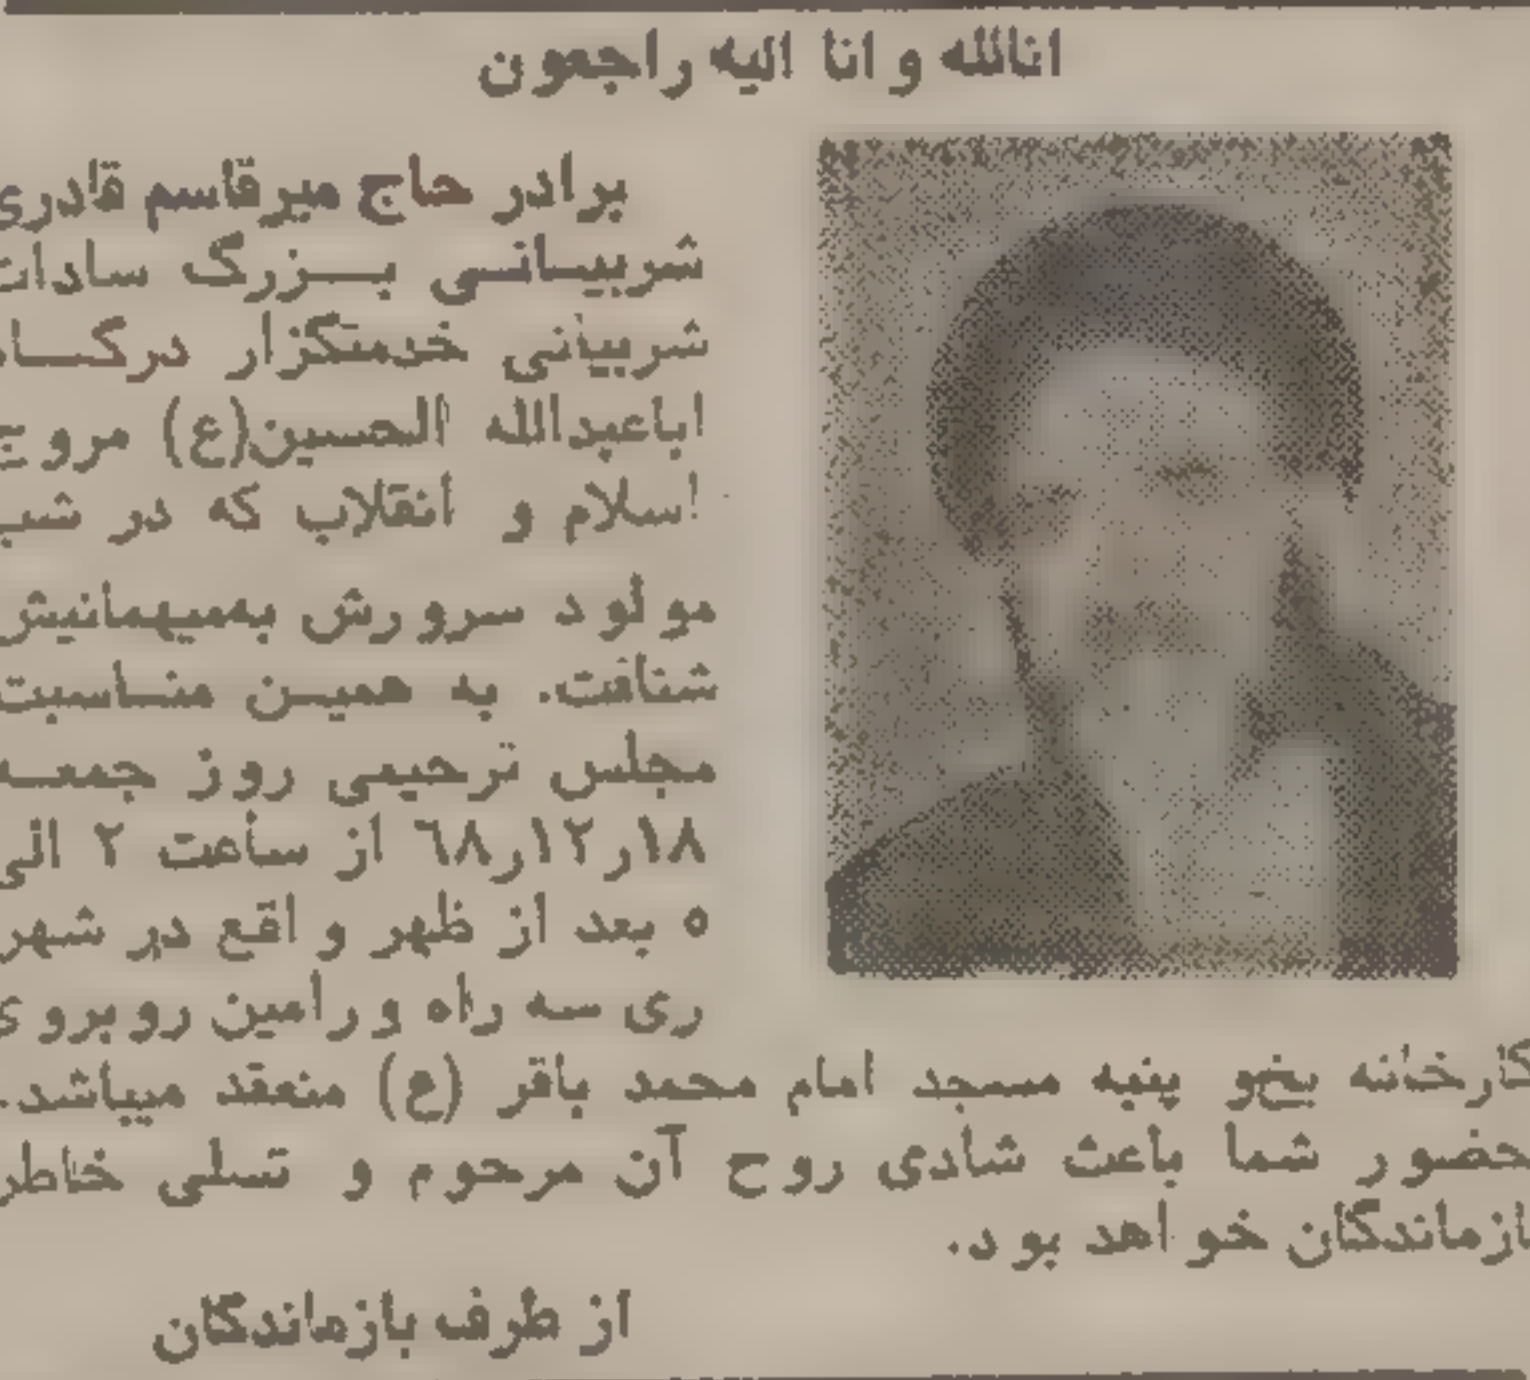 انالله و انا الیه راجعون
برادر حاج میرقاسم قادری
شربیانی بزرگ سادات
شربیانی خدمتگزار درگاه
اباعبدالله الحسین(ع) مروج
اسلام و انقلاب که در شب
مولود سرورش به‌میهمانیش
شتافت. به همین مناسبت
مجلس ترحیمی روز جمعه
۱۸ر۱۲ر۶۸ از ساعت ۲ الی
۵ بعد از ظهر واقع در شهر
ری سه راه ورامین روبروی
کارخانه یخ‌و پنبه مسجد امام محمد باقر (ع) منعقد میباشد.
حضور شما باعث شادی روح آن مرحوم و تسلی خاطر
بازماندگان خواهد بود.
از طرف بازماندگان